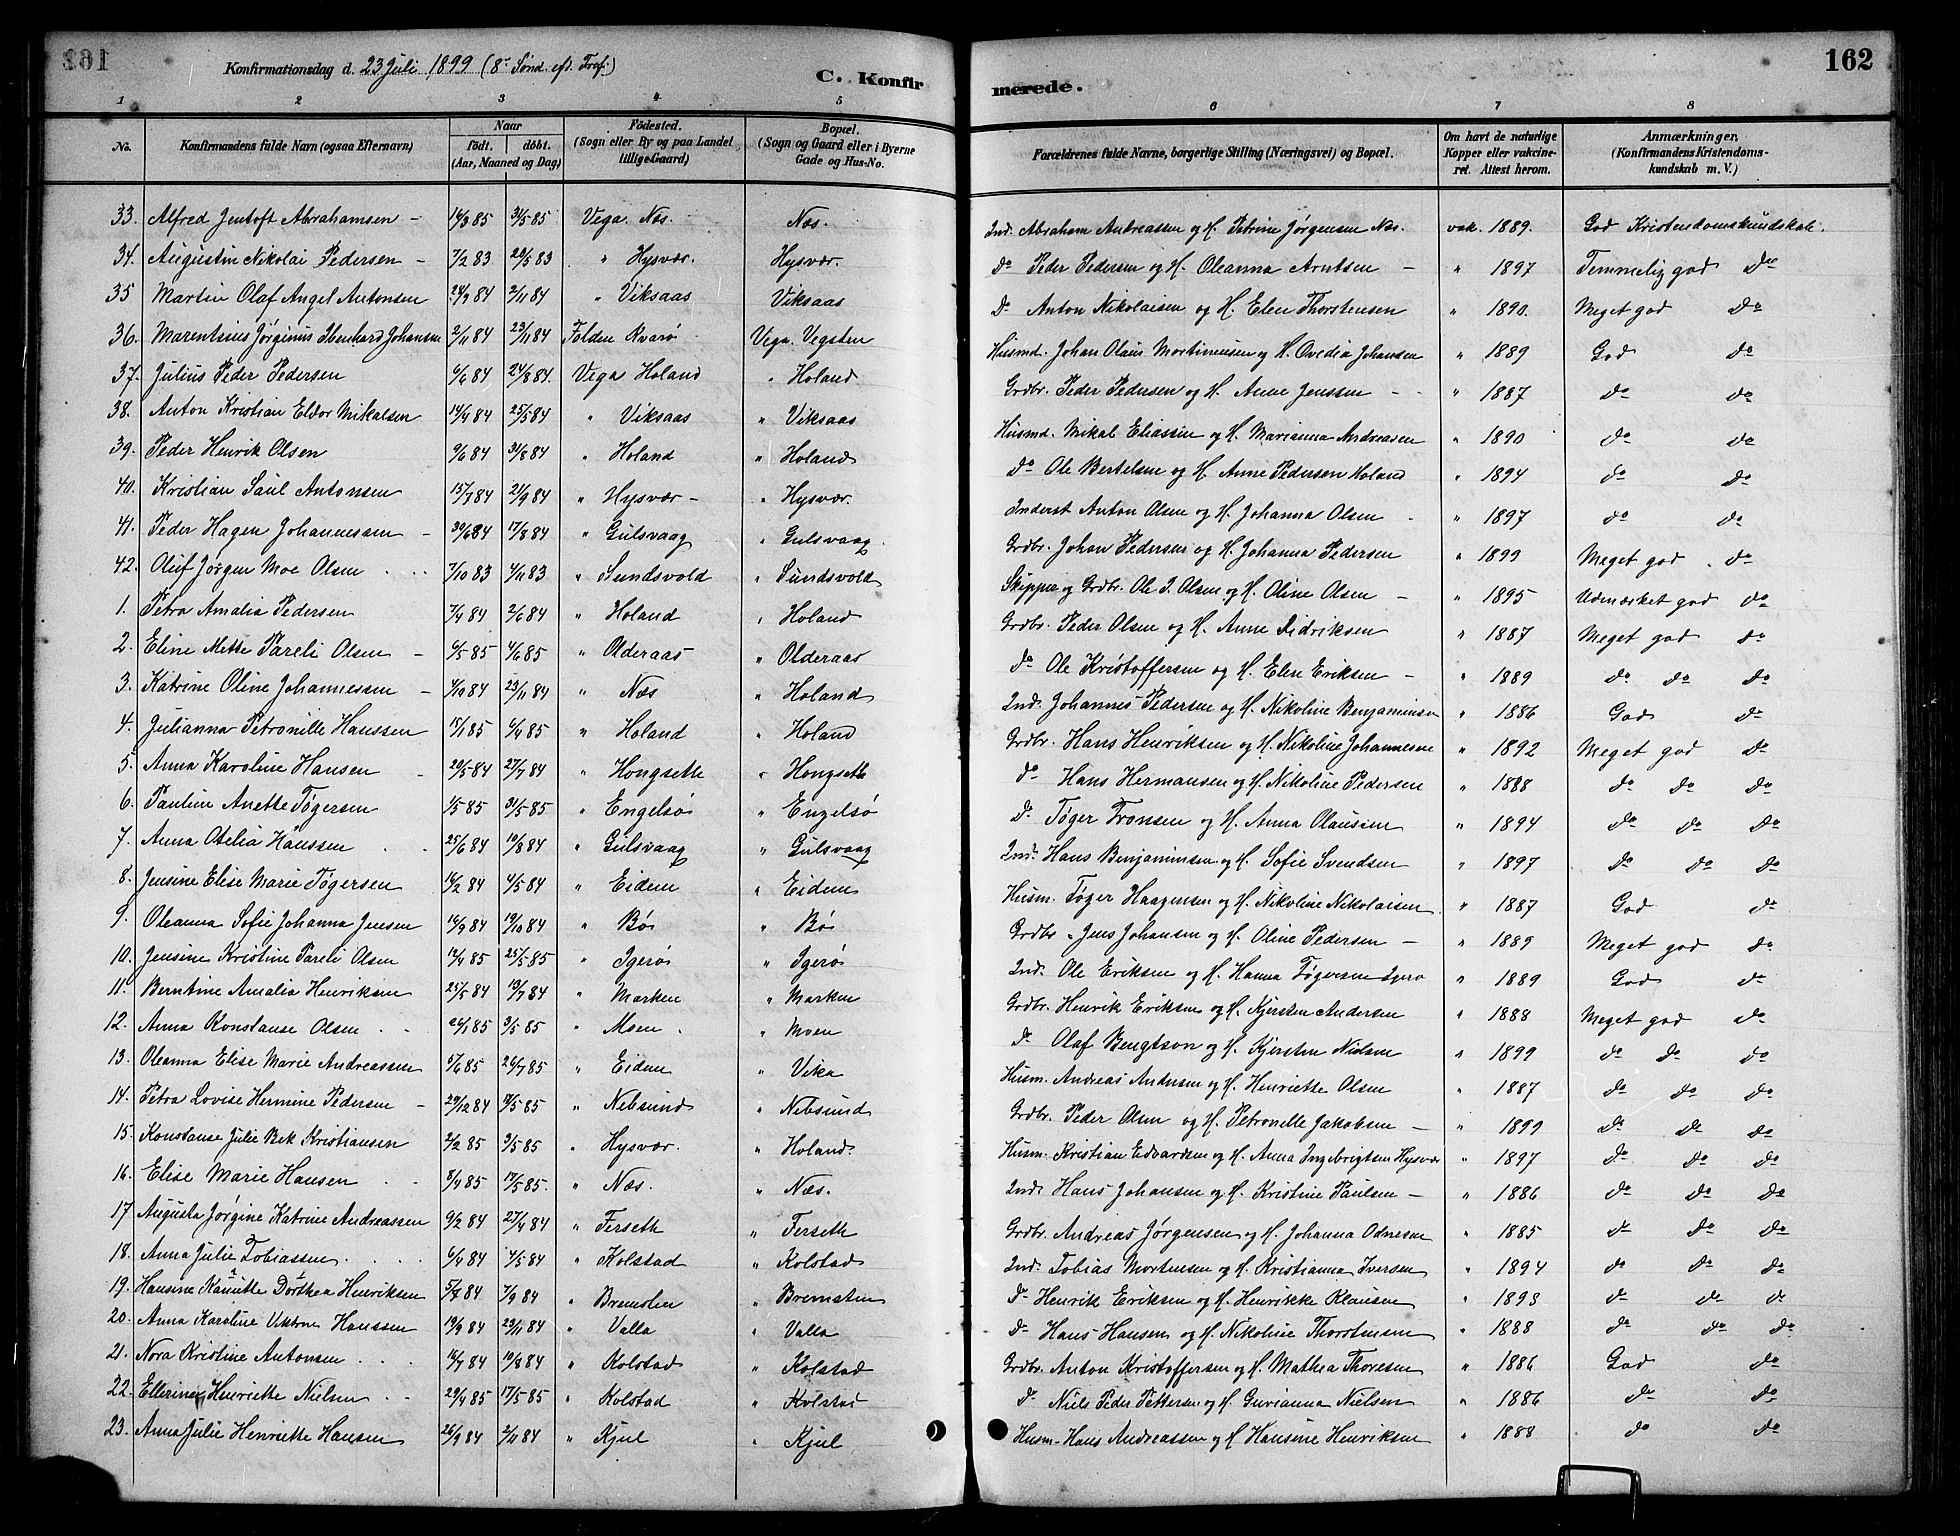 162
Konfirmationsdag d. 23 Juli 1899 (8de Sønd. eft. Tref.)
C. Konfirmerede.
1 2 3 4 5 6 7 8
No. | Konfirmandens fulde Navn (ogsaa Efternavn) | Naar født. døbt. (Aar, Maaned og Dag) | Fødested. (Sogn eller By og paa Landet tillige Gaard) | Bopæl. (Sogn og Gaard eller i Byerne Gade og Hus-No. | Forældrenes fulde Navne, borgerlige Stilling (Næringsvei) og Bopæl. | Om havt de naturlige Kopper eller vakcineret. Attest herom. | Anmærkninger, (Konfirmandens Kristendomskundskab m. V.)
33. Alfred Jentoft Abrahamsen – 14/3 85 31/5 85 Vega. Næs. Næs. Ind. Abraham Andreassen og H. Petrine Jørgensen Næs. vak. 1889. God Kristendomskundskab.
34. Augustin Nikolai Pedersen – 7/2 83 20/5 83 " Hysvær. Hysvær. do Peder Pedersen og H. Oleanna Arntsen – " 1897 Temmelig god do
35 Martin Olaf Angel Antonsen 24/9 84 2/11 84 " Viksaas Viksaas do Anton Nikolaisen og H. Elen Thorstensen " 1890. Meget god do
36. Marentsius Jørginus Ibenhard Johansen 2/11 84 23/11 84 Folden Kvarø Vega. Vegsten Husmd. Johan Olaus Mortinusen og H. Ovedia Johansen " 1889 God do
37. Julius Peder Pedersen 6/6 84 24/8 84. Vega Holand " Holand Grdbr. Peder Pedersen og H. Anne Jenssen – " 1887 do do
38. Anton Kristian Eldor Mikalsen 14/4 84 25/5 84 " Viksaas " Viksaas Husmd. Mikal Eliassen og H. Marianna Andreasen " 1890 do do
39. Peder Henrik Olsen 9/6 84 31/8 84 " Holand " Holand do Ole Bertelsen og H. Anne Pedersen Holand " 1894 do do
40. Kristian Saul Antonsen 15/7 84 21/9 84 " Hysvær – " Hysvær. Inderst Anton Olsen og H. Johanna Olsen – " 1897 do do
41. Peder Hagen Johannessen – 30/6 84 17/8 84 " Gulsvaag " Gulsvaag. Grdbr. Johan Pedersen og H. Johanna Pedersen " 1899 Meget god. do
42. Oluf Jørgen Moe Olsen 7/10 83 4/11 83 " Sundsvold " Sundsvold Skipper og Grdbr. Ole I. Olsen og H. Oline Olsen – " 1895 Udmærket god do
1. Petra Amalia Pedersen 7/4 84 2/6 84 " Holand " Holand Grdbr. Peder Olsen og H. Anne Didriksen " 1887 Meget god do
2. Eline Mette Pareli Olsen – 6/5 85 4/6 85 " Olderaas " Olderaas do Ole Kristoffersen og H. Elen Eriksen – " 1889 do do do
3. Katrine Oline Johannessen – 4/10 84 23/11 84 " Næs " Holand Ind. Johannes Pedersen og H. Nikoline Benjaminsen " 1886 God do
4. Julianna Petronille Hanssen 15/1 85 6/4 85 " Holand " Holand Grdbr. Hans Henriksen og H. Nikoline Johannesen " 1892 Meget god do
5. Anna Karoline Hansen 20/5 84 27/7 84 " Hongseth " Hongseth do Hans Hermansen og H. Nikoline Pedersen " 1888 do do do
6. Pauline Anette Tøgersen 1/5 85 31/5 85 " Engelsø " Engelsø do Tøger Tronsen og H. Anna Olausen " 1894 do do do
7. Anna Otelia Hanssen 25/6 84 10/8 84 " Gulsvaag " Gulsvaag Ind. Hans Benjaminsen og H. Sofie Svendsen " 1897 do do do
8. Jensine Elise Marie Tøgersen 14/2 84 4/5 84 " Eidem " Eidem Husm. Tøger Haagensen og H. Nikoline Nikolaisen. " 1887 God do
9. Oleanna Sofie Johanna Jensen 14/9 84 19/10 84 " Bø " Bø Grdbr. Jens Johansen og H. Oline Pedersen – " 1889 Meget god do
10. Jensine Kristine Pareli Olsen 12/4 85 25/5 85 " Igerø " Igerø Ind. Ole Eriksen og H. Hanna Tøgersen Igerø " 1889 God do
11. Berntine Amalia Henriksen 25/5 84 19/7 84 " Marken " Marken Grdbr. Henrik Eriksen og H. Kjersten Andersen " 1888 Meget god do
12. Anna Konstanse Olsen 26/1 85 3/5 85 " Moen. " Moen do Olaf Bengtson og H. Kjersten Nielsen " 1899 do do do
13. Oleanna Elise Marie Andreassen 5/6 85 26/7 85 " Eidem " Vika Husm. Andreas Andersen og H. Henriette Olsen " 1887 do do do
14. Petra Lovise Hermine Pedersen – 29/12 84 14/5 85 " Nebsund " Nebsund Grdbr. Peder Olsen og H. Petronelle Jakobsen – " 1899 do do do
15. Konstanse Julie Bek Kristiansen 2/2 85 3/5 85 " Hysvær. " Holand. Husm. Kristian Edvardsen og H. Anna Ingebrigtsen Hysvær " 1897 do do do
16. Elise Marie Hansen 8/4 85 17/5 85. " Næs. " Næs. Ind. Hans Johansen og H. Kristine Paulsen – " 1886 do do do
17 Augusta Jørgine Katrine Andreassen 9/2 84 27/4 84 " Ferseth " Ferseth Grdbr. Andreas Jørgensen og H. Johanna Odnesen " 1885 do do do
18. Anna Julie Tobiassen 6/4 84 4/5 84 " Kolstad " Kolstad Ind. Tobias Mortensen og H. Kristianna Iversen " 1894 do do do
19. Hansine Kanutte Dorthea Henriksen 5/7 84 7/9 84 " Bremsten " Bremsten do Henrik Eriksen og H. Henrikke Klausen " 1893 do do do
20. Anna Karoline Viktine Hanssen 19/9 84 23/11 84 " Valla " Valla do Hans Hansen og H. Nikoline Thorstensen " 1888 do do do
21. Nora Kristine Antonsen 16/7 84 10/8 84 " Kolstad " Kolstad Grdbr. Anton Kristoffersen og H. Mathea Thoresen " 1886 God do
22. Ellerine Henriette Nielsen 29/4 85 17/5 85 " Kolstad " Kolstad do Niels Peder Pettersen og H. Gurianna Nielsen " 1886 do do
23. Anna Julie Henriette Hansen 26/9 84 2/11 84 " Kjul " Kjul Husm. Hans Andreassen og H. Hansine Henriksen " 1888 do do